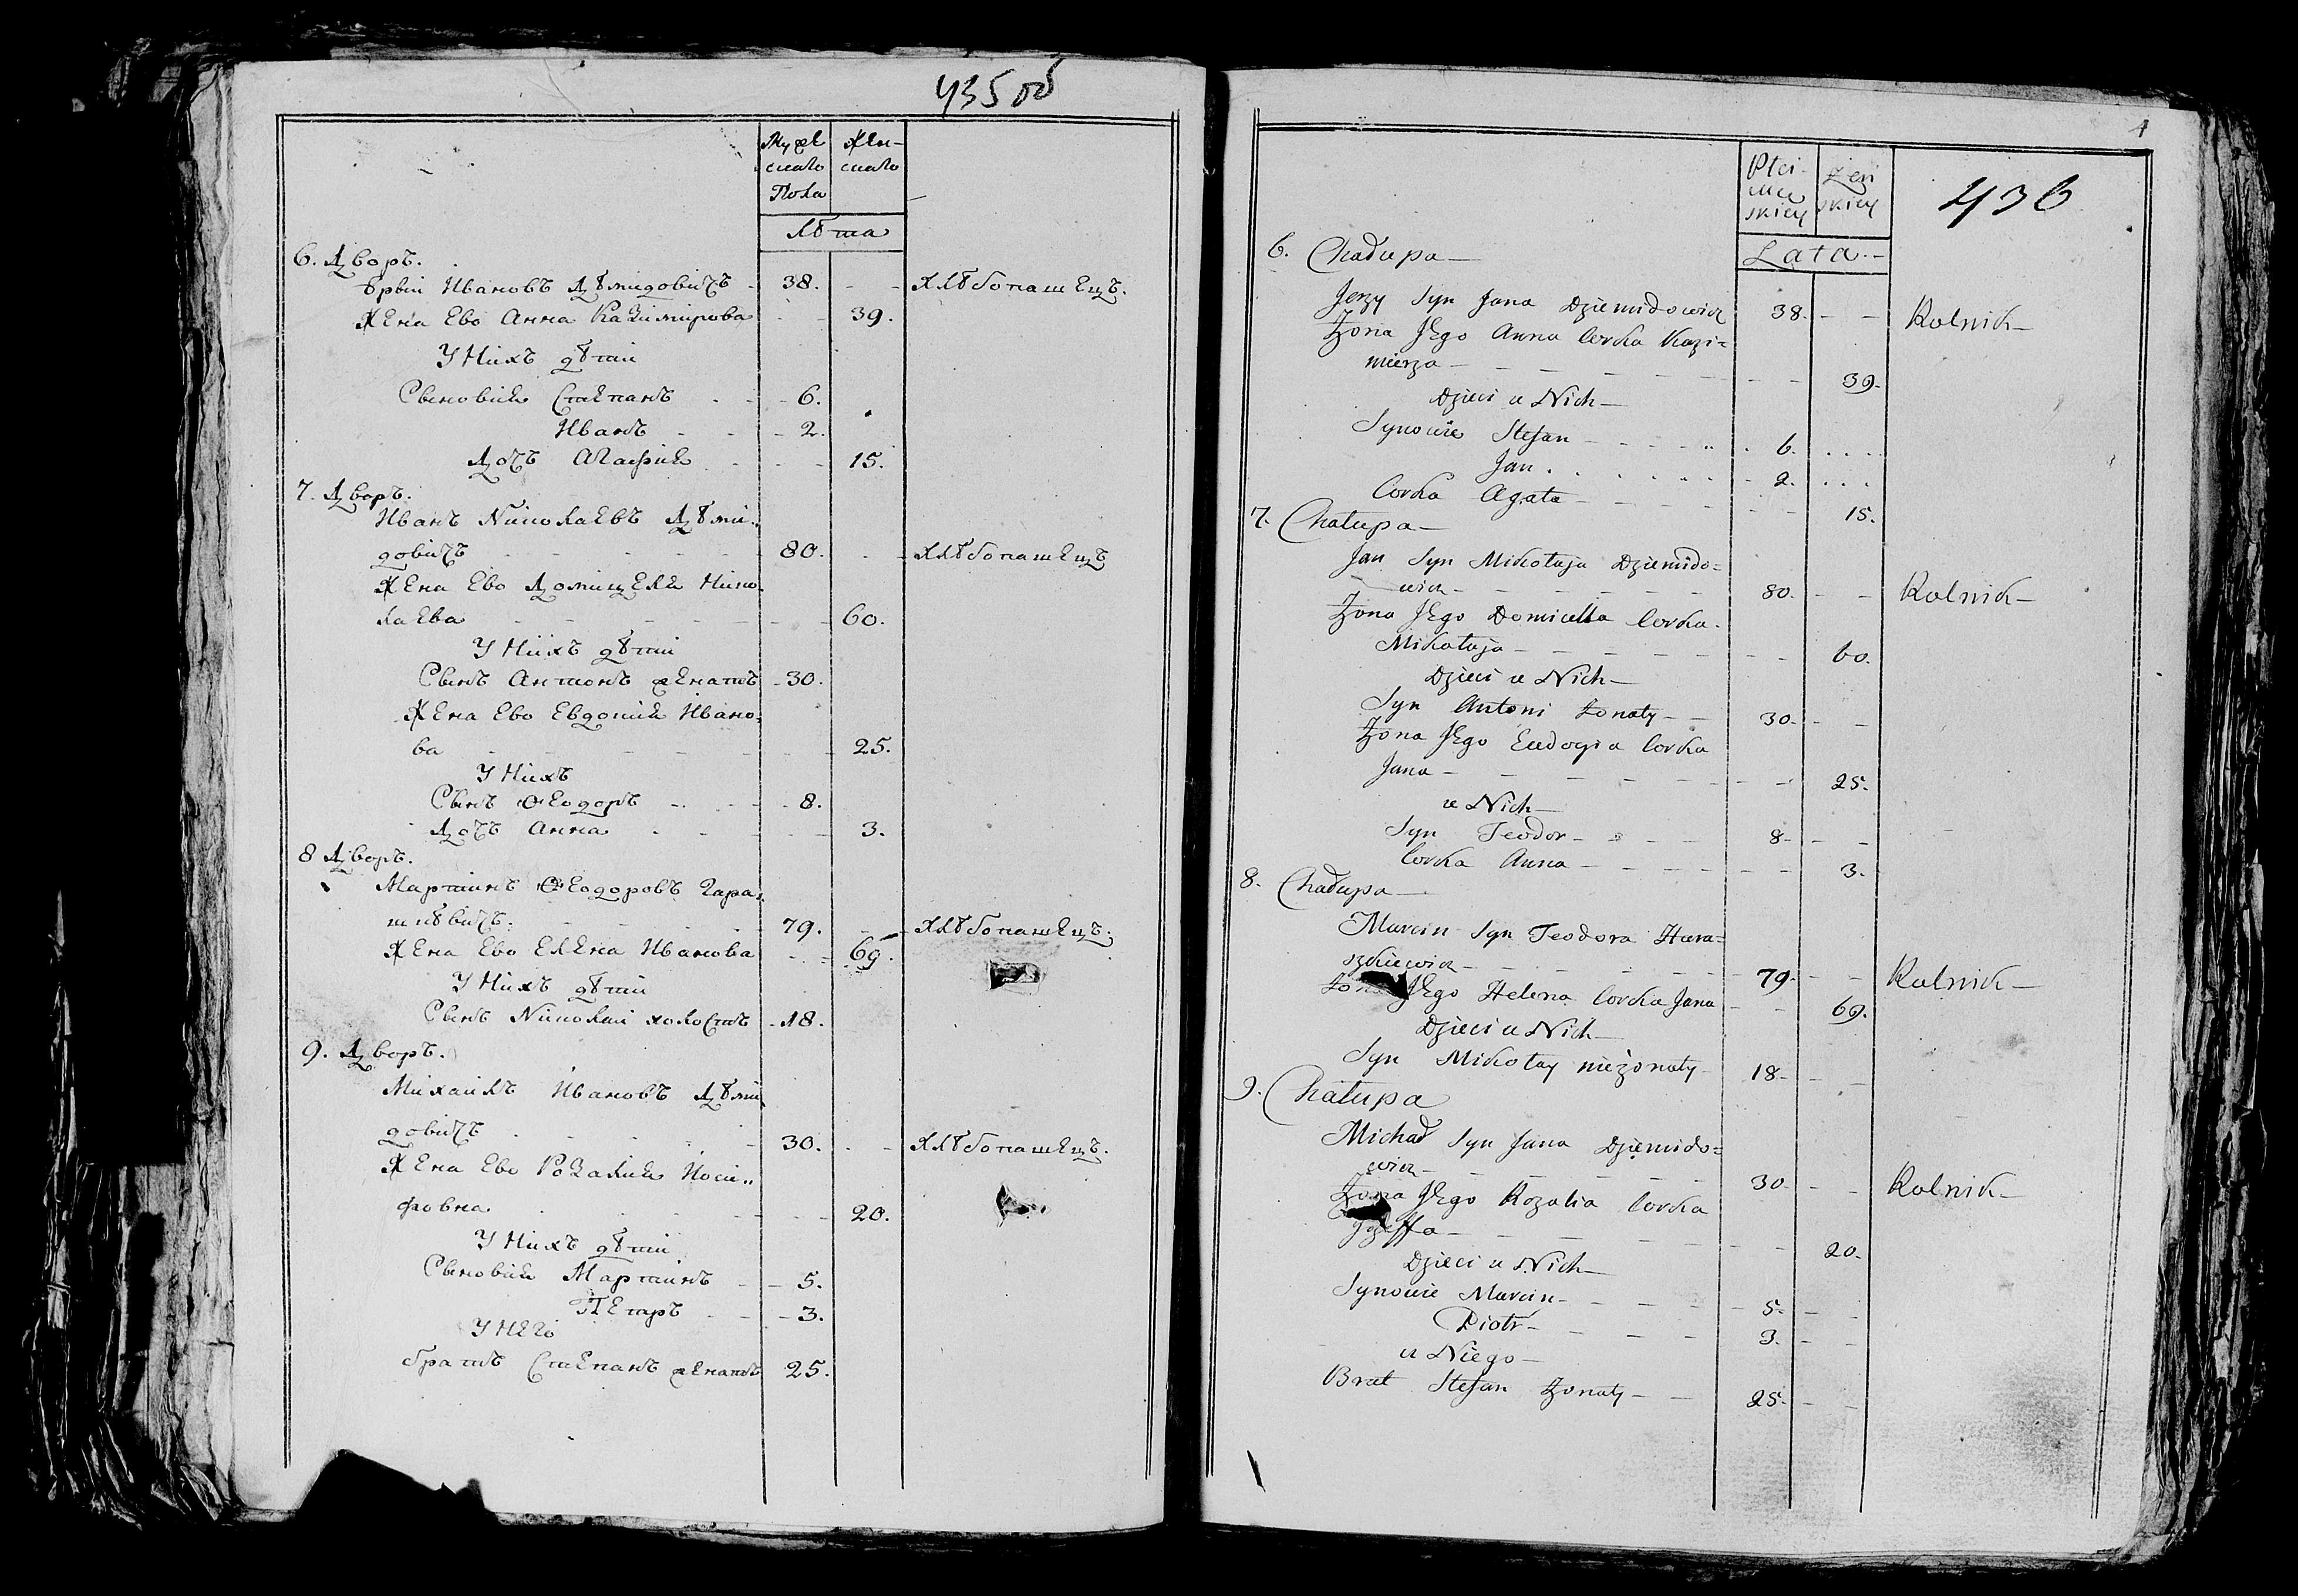 435 об
Муже Жен-
скаго скаго
Пола
Лѣта
6. Дворъ.
Юрьи Ивановъ Дѣмидовичъ - 38. - - Хлѣбопашецъ.
Жена Ево Анна Казимирова - - 39.
У Нихъ дѣти
Сыновья Степанъ - - - 6.
Иванъ - - - 2.
Дочь Агафия - - - 15.
7. Дворъ.
Иванъ Николаевъ Дѣми-
довичъ - - - 80. - - Хлѣбопашецъ
Жена Ево Домицеля Нико-
лаева - - - 60.
У Нихъ дѣти
Сынъ Антонъ женатъ - 30.
Жена Ево Евдокия Ивано-
ва - - - 25.
У Нихъ
Сынъ Ѳеодоръ - - - 8.
Дочь Анна - - - 3.
8 Дворъ.
Мартинъ Ѳеодоровъ Гара-
шкѣвичъ. - - - 79. - - Хлѣбопашецъ.
Жена Ево Елена Иванова - - 69.
У Нихъ дѣти
Сынъ Николай холостъ - 18.
9. Дворъ.
Михаилъ Ивановъ Дѣми
довичъ - - - 30. - - Хлѣбопашецъ.
Жена Ево Розалия Иоси-
фовна - - - 20.
У Нихъ дѣти
Сыновья Мартинъ - - 5.
Петръ - - - 3.
У Него
братъ Степанъ женатъ 25.
4
Płci Żeń
Męz skiey
skiey
436
Lata.-
6. Chałupa -
Jerzy Syn Jana Dziemidowicz 38. - - Rolnik -
Żona Jego Anna Corka Kazi=
mierza - - - 39.
Dzieci u Nich -
Synowie Stefan - - - 6. . . . .
Jan . . . . . . - 2. . . .
Corka Agata - - - 15.
7. Chałupa -
Jan Syn Mikołaja Dziemido=
wicz - - - 80. - - Rolnik -
Żona Jego Domicella Corka
Mikołaja - - - 60.
Dzieci u Nich -
Syn Antoni Żonaty - - 30. - -
Żona Jego Eudogia Corka
Jana - - - 25.
u Nich -
Syn Teodor - - - 8 - - -
Corka Anna - - - 3.
8. Chałupa -
Marcin Syn Teodora Hara=
szkiewicz - - - 79. - - Rolnik -
Żona Jego Helena Corka Jana - - 69.
Dzieci u Nich -
Syn Mikołay nieżonaty - 18 - - -
9. Chałupa
Michał Syn Jana Dziemido=
wicz - - - 30 - - - Rolnik -
Żona Jego Rozalia Corka
Jozeffa - - - 20.
Dzieci u Nich -
Synowie Marcin - - - 5 - - -
Piotr - - - 3. - -
u Niego -
Brat Stefan Żonaty - - 25. - -